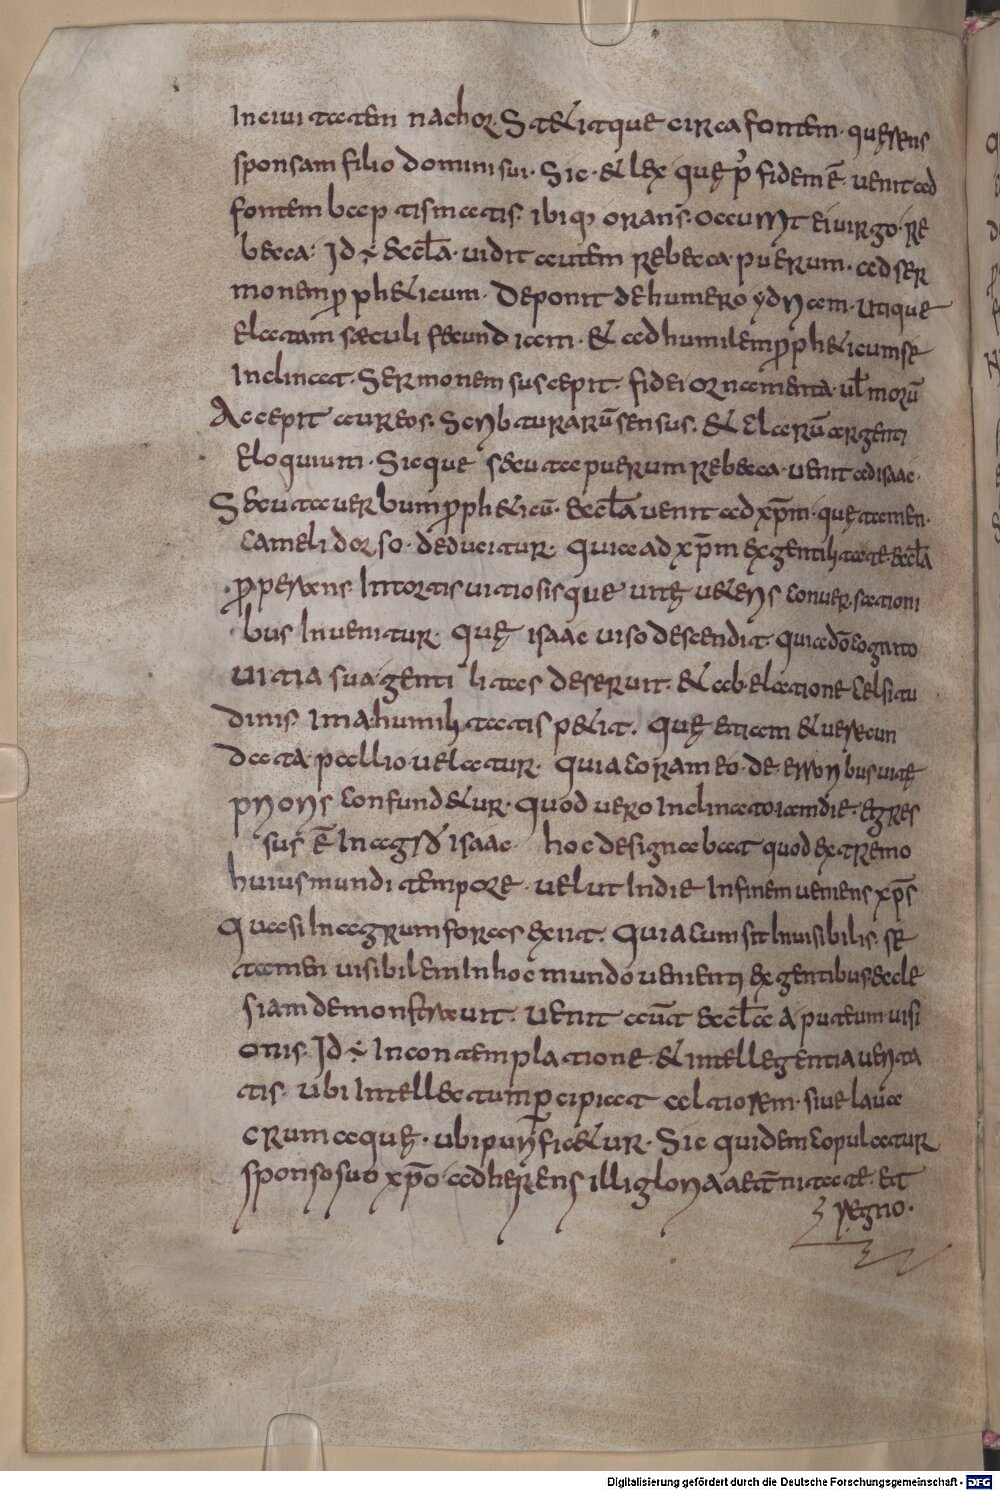 In ciuitatem nachor. Stetitque circa fontem. querens
sponsam filio domini sui. Sic. et lex que p̄ fidem ē. uenit ad
fontem baptismatis. ibiq; orans. occurrit ei uirgo. re
becca. Id ÷ eccła. uidit autem rebecca puerum. ad ser
monem ꝓpheticum. Deponit de humero ydriam. utique
elatam sæculi fecundiam. et ad humilem ꝓpheticum se
Inclinat. Sermonem suscepit. fidei ornamenta. uł morū
Accepit aureos. Scripturarū sensus. et Clarū argenti
eloquium. Sicque secuta puerum rebecca. uenit ad isaac.
Secuta uerbum ꝓpheticū. eccła uenit ad xp̄m. que tamen.
Cameli dorso. deducitur. Quia ad xp̄m ex gentilitate eccła
ꝓperans. Intortis uitiosisque uite ueteris conuersationi
bus Inuenitur. que isaac uiso descendit. Qui a dō cognito
uitia sua gentilitas deseruit. et ab elatione celsitu
dinis. Ima humilitatis petit. que etiam et uerecun
data pallio uelatur. quia coram eo. de erroribus uite
prioris confundetur. quod uero Inclinato iam die. egres
sus ē In agrū isaac hoc designabat quod extremo
huius mundi tempore. uelut In die Infinem ueniens xp̄s
Quasi In agrum foras exiit. Quia cum sit Inuisibilis. se
tamen uisibilem In hoc mundo uenienti ex gentibus eccle
siam demonstrauit. Uenit aūt eccła a puteum uisi
onis. Id ÷ In contemplatione. et intellegentia uerita
tis. ubi Intellectum ꝑcipiat altiorem. siue laua
crum aque. ubi purificetur. Sic quidem copulatur
sponso suo xp̄o. adherens illi gloria aet̄nitate. et
regno.
Digitalisierung gefördert durch die Deutsche Forschungsgemeinschaft - DFG